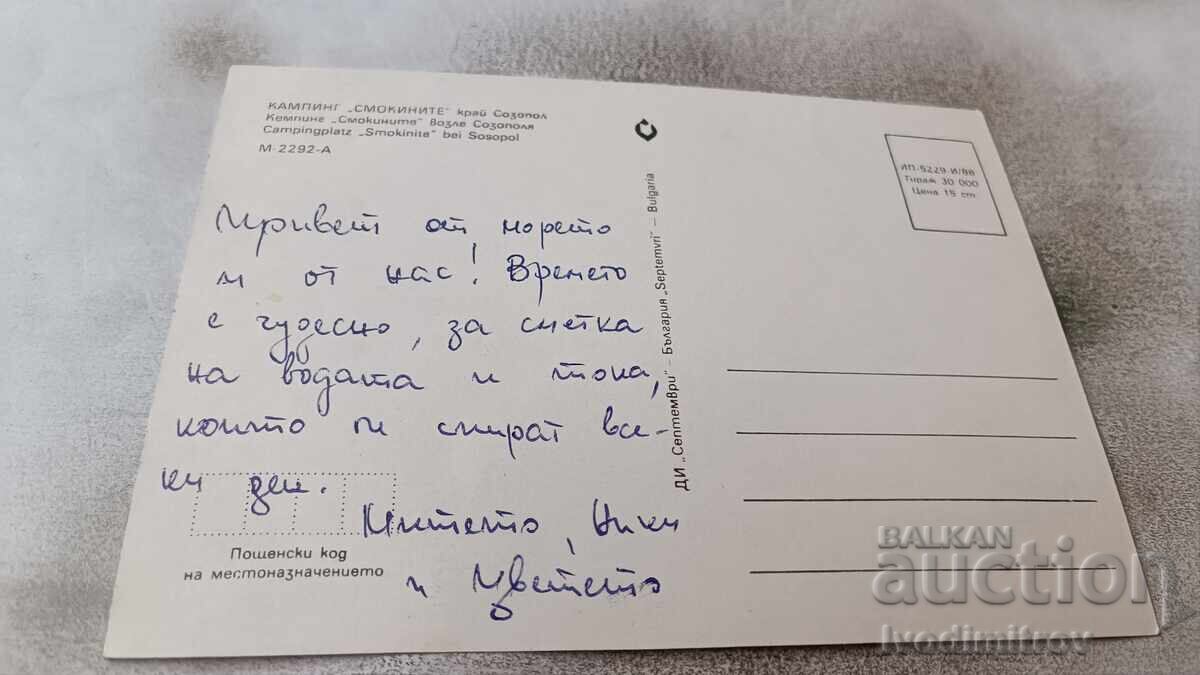 КАМПИНГ „СМОКИНИТЕ" край Созопол
Кемпинг „Смокините" возле Созополя
Campingplatz „Smokinite" bei Sosopol
М-2292-А
Привет от морето
и от нас! Времето
е чудесно, за сметка
на водата и тока,
които ги спират все-
ки ден.
Митето, Ники
и Цветето
Пощенски код
на местоназначението
ДИ „Септември" — България „Septemvri" — Bulgaria
ИП-5229-И/88
Тираж 30 000
Цена 15 ст.
BALKAN
auction
Ivodimitrov